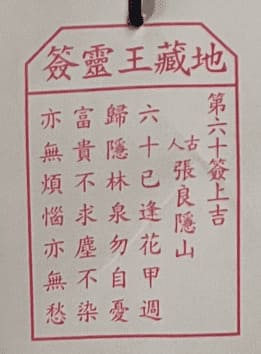 地藏王靈簽
第六十簽上吉
古人張良隱山
六十已逢花甲週
歸隱林泉勿自憂
富貴不求塵不染
亦無煩惱亦無愁